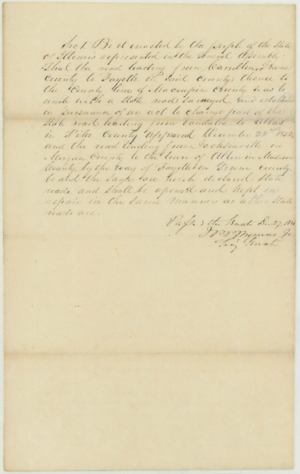 Sec 1 Be it enacted by the people of the State
of Illinois represented in the General Assembly
That the road leading from Carrollton Greene
County to Fayette in said County thence to
the County line of Macoupin County so as to
with a State road surveyed and
in pursuance of an act to change part of the
State road leading from Vandalia to
in Pike County approved December 22nd
and the road leading from Jacksonville in
Morgan County to the town of Alton in Madison
County by the way of Fayette in Greene County
be and the same are hereby declared State
roads and shall be opened and kept in
repair in the same manner as other State
roads are.
the Senate Dec 27
Secy Senate